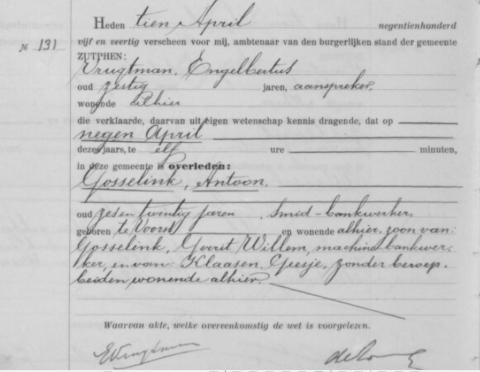 Heden tien April negentienhonderd
№ 131 vijf en veertig verscheen voor mij, ambtenaar van den burgerlijken stand der gemeente
ZUTPHEN:
Vrugtman, Engelbertus
oud zestig jaren, aanspreker,
wonende alhier
die verklaarde, daarvan uit eigen wetenschap kennis dragende, dat op
negen April
dezes jaars, te elf ure minuten,
in deze gemeente is overleden:
Gosselink, Antoon.
oud zes en twintig jaren, Smid-bankwerker,
geboren te Voorst en wonende alhier, zoon van:
Gosselink, Gerrit Willem, machinebankwer-
ker, en van Klaasen, Geesje, zonder beroep,
beiden wonende alhier.
Waarvan akte, welke overeenkomstig de wet is voorgelezen.
EVrugtman